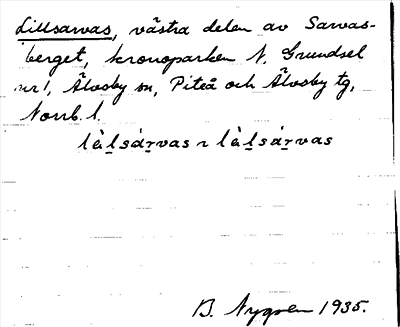 Lillsarvas, västra delen av Sarvas-
berget, kronoparken N. Grundsel
nr 1, Älvsby sn, Piteå och Älvsby tg,
Norrb. l.
lìl̠sár̠vas ~ lìl̠sár̠vas
B. Nygren 1935.